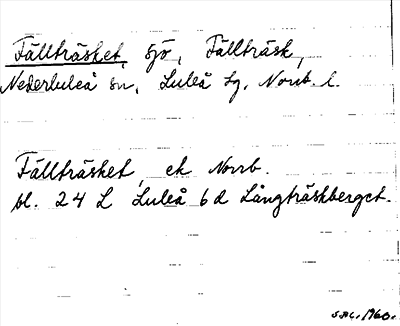 Fällträsket, sjö, Fällträsk,
Nederluleå sn, Luleå tg, Norrb. l.
Fällträsket, ek Norrb.
bl. 24 L Luleå 6d Långträskberget.
1960.